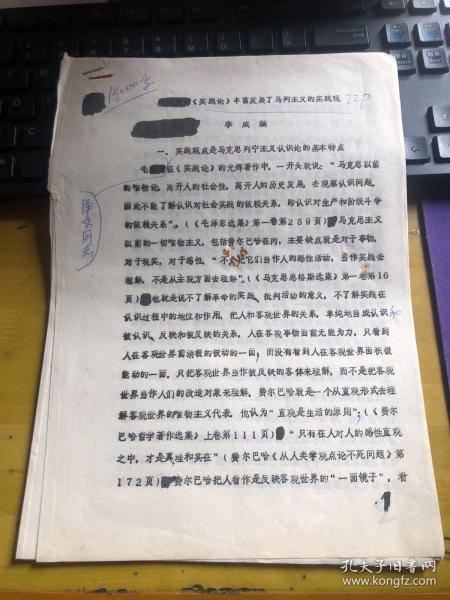 1500字
《实践论》丰富发展了马列主义的实践观
220
李成
一、实践观点是马克思列宁主义认识论的基本特点
毛 在《实践论》的光辉著作中，一开头就说：“马克思以前
的唯物论，离开人的社会性，离开人的历史发展，去观察认识问题，
因此不能了解认识对社会实践的依赖关系，即认识对生产和阶级斗争
的依赖关系”。（《毛泽东选集》第一卷第259页） 马克思主义
以前的一切唯物主义，包括费尔巴哈在内，主要缺点就是对于事物，
对于现实，对于感性，“不把它们当作人的感性活动，当作实践去
理解，不是从主观方面去理解”。（《马克思恩格斯选集》第一卷第16
页） 也就是说不了解革命的实践、批判活动的意义，不了解实践在
认识过程中的地位和作用，把人和客观世界的关系，单纯地当成认识和
被认识、反映和被反映的关系，人在客观事物面前无能为力，只看到
人在客观世界面前消极的被动的一面，而没有看到人在客观世界面积极
能动的一面，只把客观世界当作被反映的客体来理解，而不是把客观
世界当作人们的改造对象来理解，费尔巴哈就是一个从直观形式去理
解客观世界的唯物主义代表。他认为“直观是生活的原则”；（《费尔
巴哈哲学著作选集》上卷第111页） “只有在人对人的感性直观
之中，才是真理和实在”（费尔巴哈《从人类学观点论不死问题》第
172页） 费尔巴哈把人看作是反映客观世界的“一面镜子”，看
1
泽东同志
孔夫子旧书网
www.kongfz.com